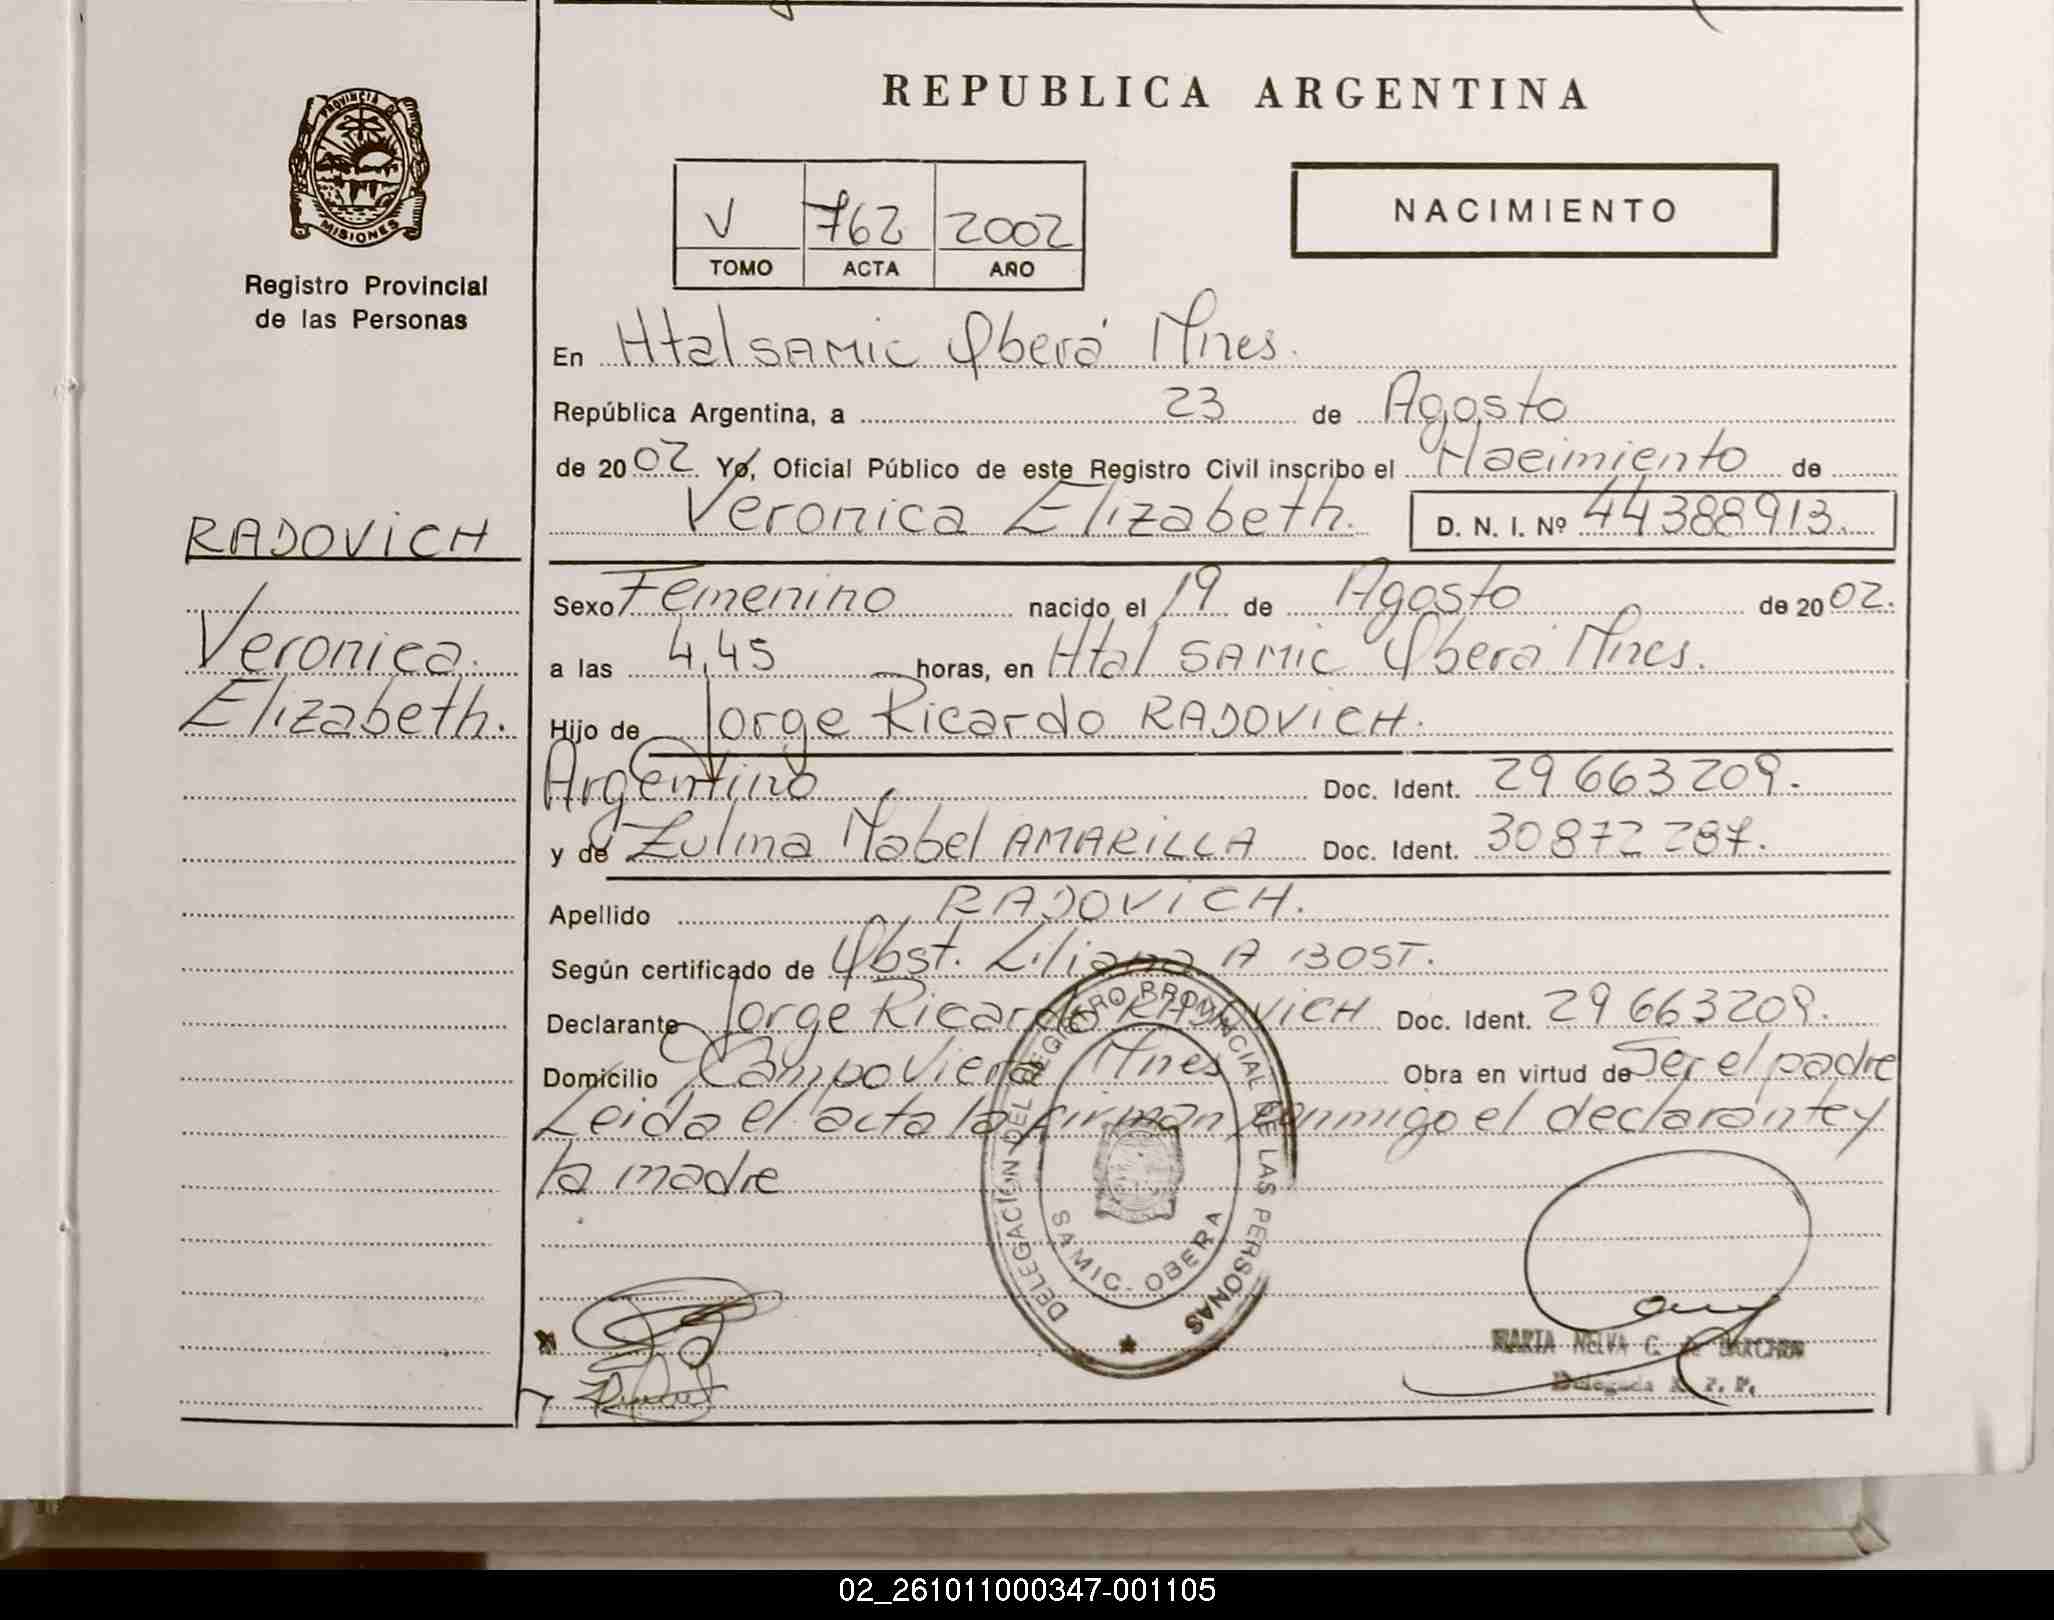 REPUBLICA ARGENTINA
PROVINCIA DE
MISIONES
Registro Provincial
de las Personas
V 762 2002
TOMO ACTA AÑO
NACIMIENTO
En Htal SAMIC Oberá Mnes.
República Argentina, a 23 de Agosto
de 2002 Yo, Oficial Público de este Registro Civil inscribo el Nacimiento de
Veronica Elizabeth. D. N. I. Nº 44388913.
RADOVICH
Veronica
Elizabeth.
Sexo Femenino nacido el 19 de Agosto de 2002.
a las 4,45 horas, en Htal SAMIC Oberá Mnes.
Hijo de Jorge Ricardo RADOVICH.
Argentino Doc. Ident. 29663209.
y de Zulma Mabel AMARILLA Doc. Ident. 30872287.
Apellido RADOVICH.
Según certificado de Obst. Liliana A BOST.
Declarante Jorge Ricardo RADOVICH Doc. Ident. 29663209.
Domicilio Campo Viera Mnes Obra en virtud de Ser el padre
Leida el acta la firman conmigo el declarante y
la madre
DELEGACION DEL REGISTRO PROVINCIAL DE LAS PERSONAS
SAMIC - OBERA
MARIA NELVA C.
Delegada R. P. P.
02_261011000347-001105